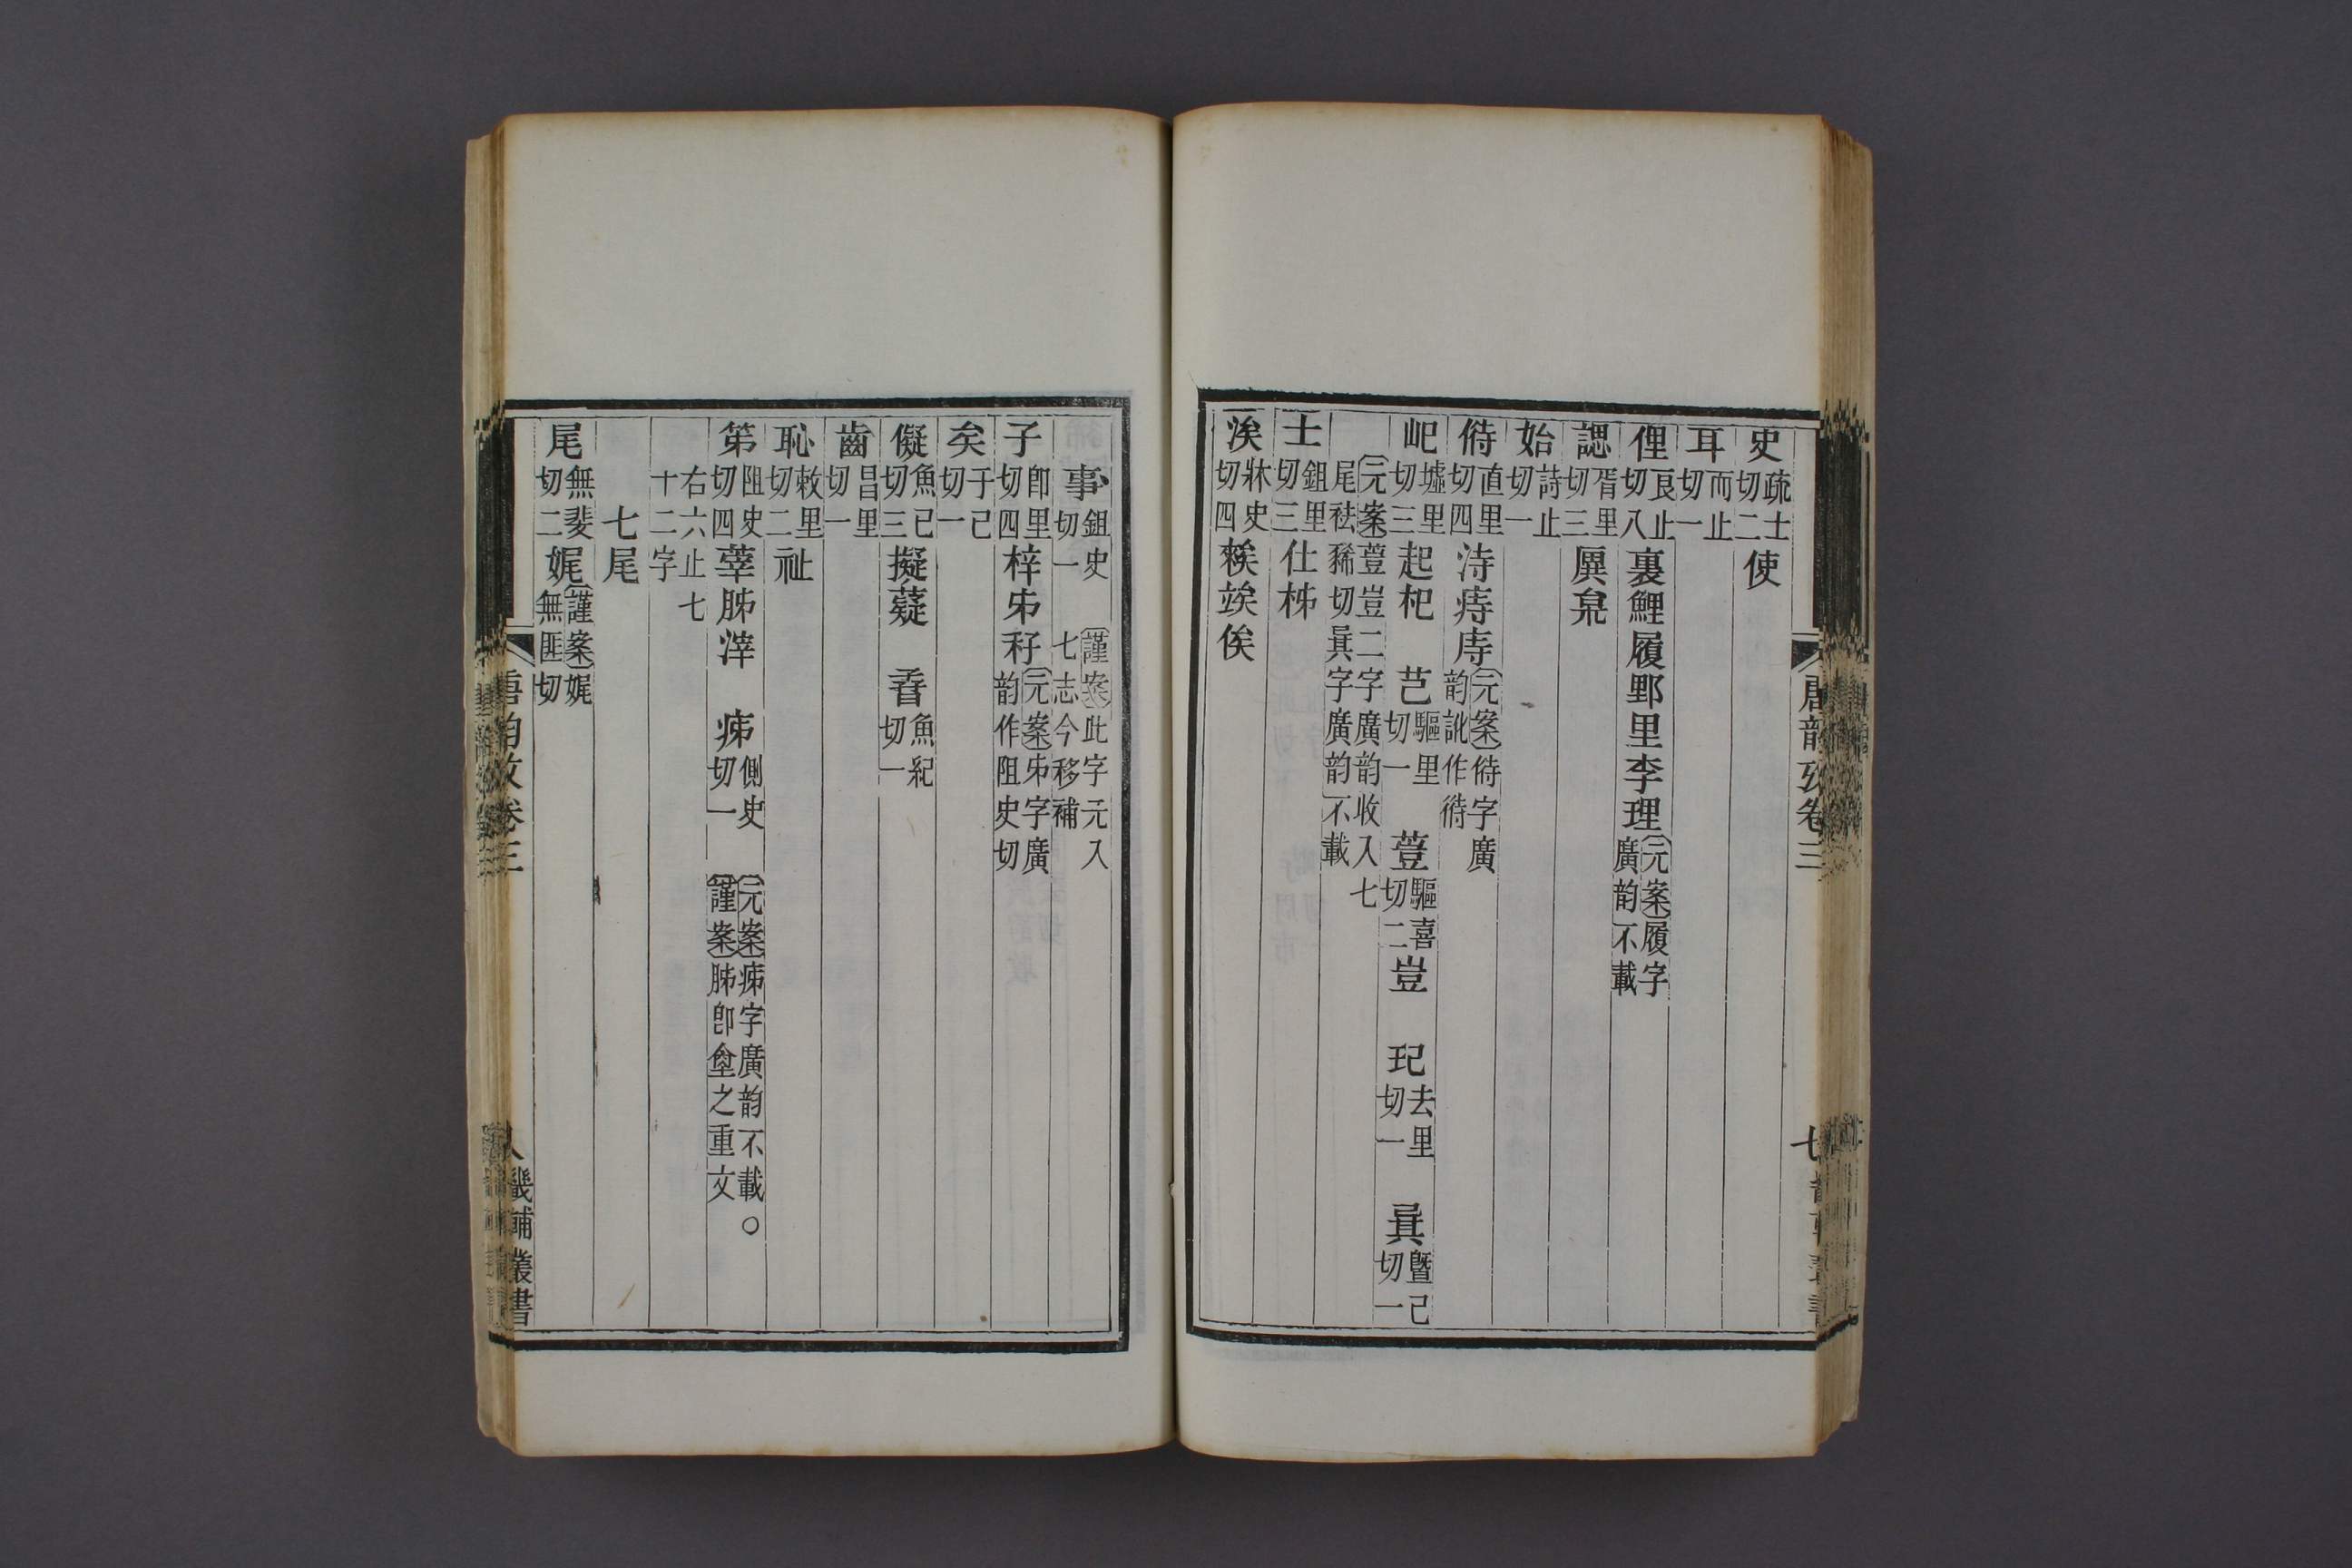 史疏士切二使
耳而止切一
俚良止切八裏鯉履郢里李理元案履字廣韵不載
諰胥里切三㔴枲
始詩止切一
偫直里切四洔痔庤元案偫字廣韵訛作㣥
屺墟里切三起杞 芑驅里切一 薆驅喜切二豈 玘去里切一 㠱曁己切一
元案薆豈二字廣韵收入七尾袪豨切㠱字廣韵不載
士鉏里切三仕柹
涘牀史切四䅦竢俟
唐韵攷卷三
七
事鉏史切一 謹案此字元入七志今移補
子卽里切四梓㞢秄元案㞢字廣韵作阻史切
矣于己切一
儗魚己切三擬薿 㬜魚紀切一
齒昌里切一
恥敕里切二祉
笫阻史切四䔂胏滓 㾊側史切一 元案㾊字廣韵不載。謹案胏卽㿽之重文
右六止七十二字
七尾
尾無斐切二娓謹案娓無匪切
唐韵攷卷三
八
畿輔叢書